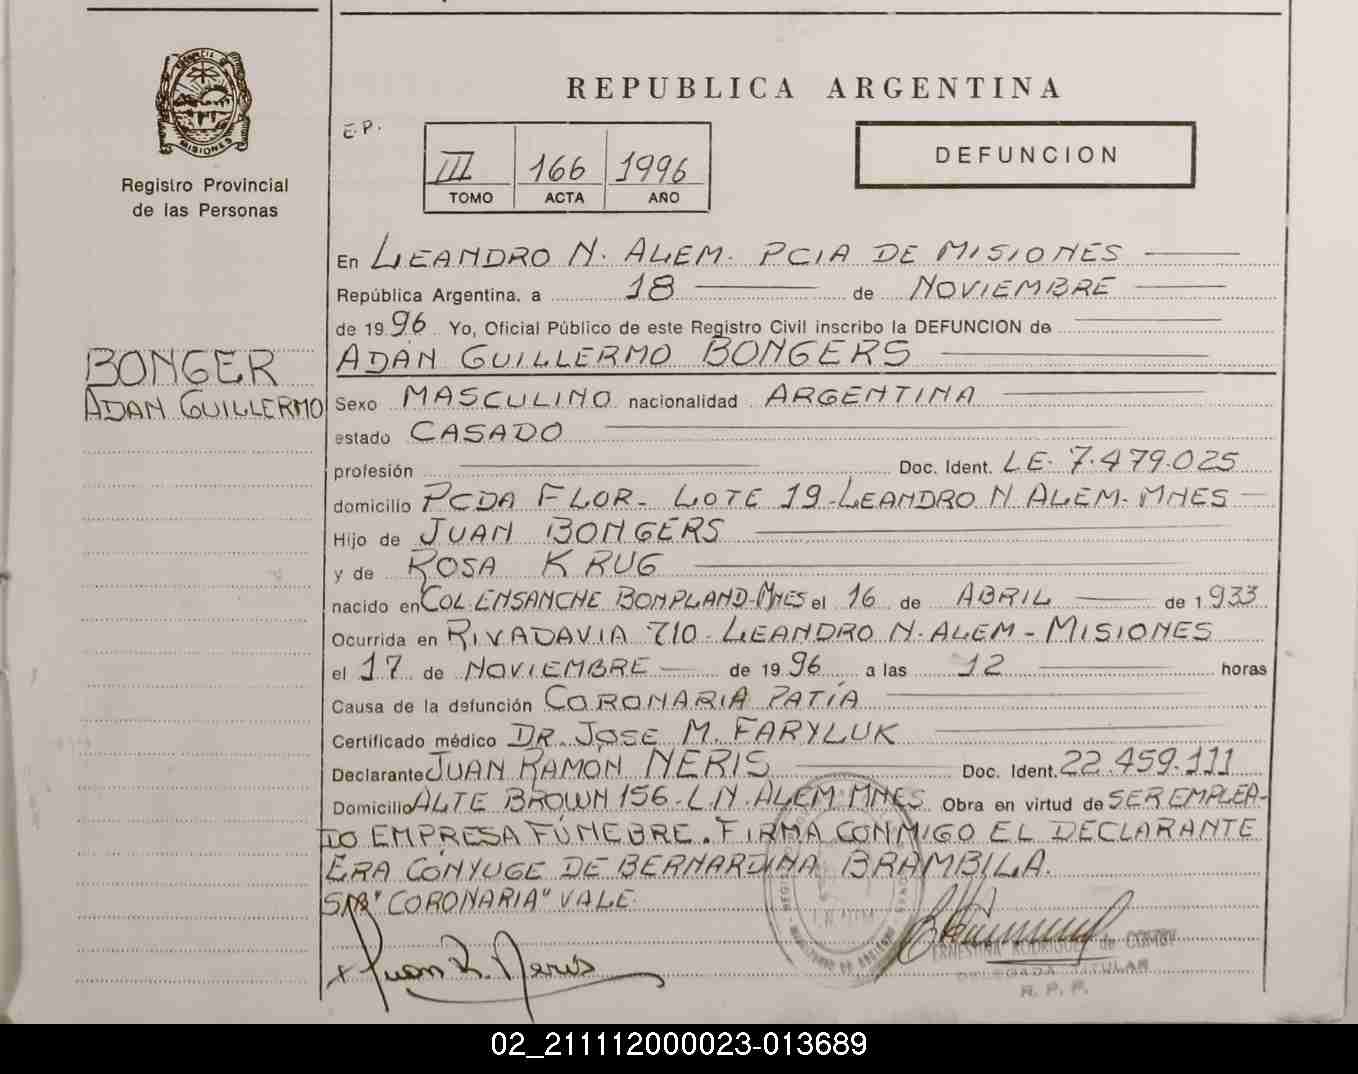 REPUBLICA ARGENTINA
PROVINCIA DE
MISIONES
Registro Provincial
de las Personas
E.P.
III 166 1996
TOMO ACTA AÑO
DEFUNCION
BONGER
ADAN GUILLERMO
En LEANDRO N. ALEM. PCIA DE MISIONES
República Argentina, a 18 de NOVIEMBRE
de 1996 Yo, Oficial Público de este Registro Civil inscribo la DEFUNCION de
ADÁN GUILLERMO BONGERS
Sexo MASCULINO nacionalidad ARGENTINA
estado CASADO
profesión Doc. Ident. LE. 7.479.025
domicilio PCDA FLOR- LOTE 19-LEANDRO N ALEM- MNES
Hijo de JUAN BONGERS
y de ROSA KRUG
nacido en COL. ENSANCHE BONPLAND-MNES el 16 de ABRIL de 1933
Ocurrida en RIVADAVIA 710- LEANDRO N. ALEM - MISIONES
el 17 de NOVIEMBRE de 1996 a las 12 horas
Causa de la defunción CORONARIA PATÍA
Certificado médico DR. JOSE M. FARYLUK
Declarante JUAN RAMON NERIS Doc. Ident. 22.459.111
Domicilio ALTE BROWN 156- L.N. ALEM MNES Obra en virtud de SER EMPLEA-
DO EMPRESA FÚNEBRE. FIRMA CONMIGO EL DECLARANTE
ERA CÓNYUGE DE BERNARDINA BRAMBILA.
"CORONARIA" VALE.
x Juan R. Neris
ERNESTINA RODRIGUEZ de
DELEGADA TITULAR
R. P. P.
02_211112000023-013689